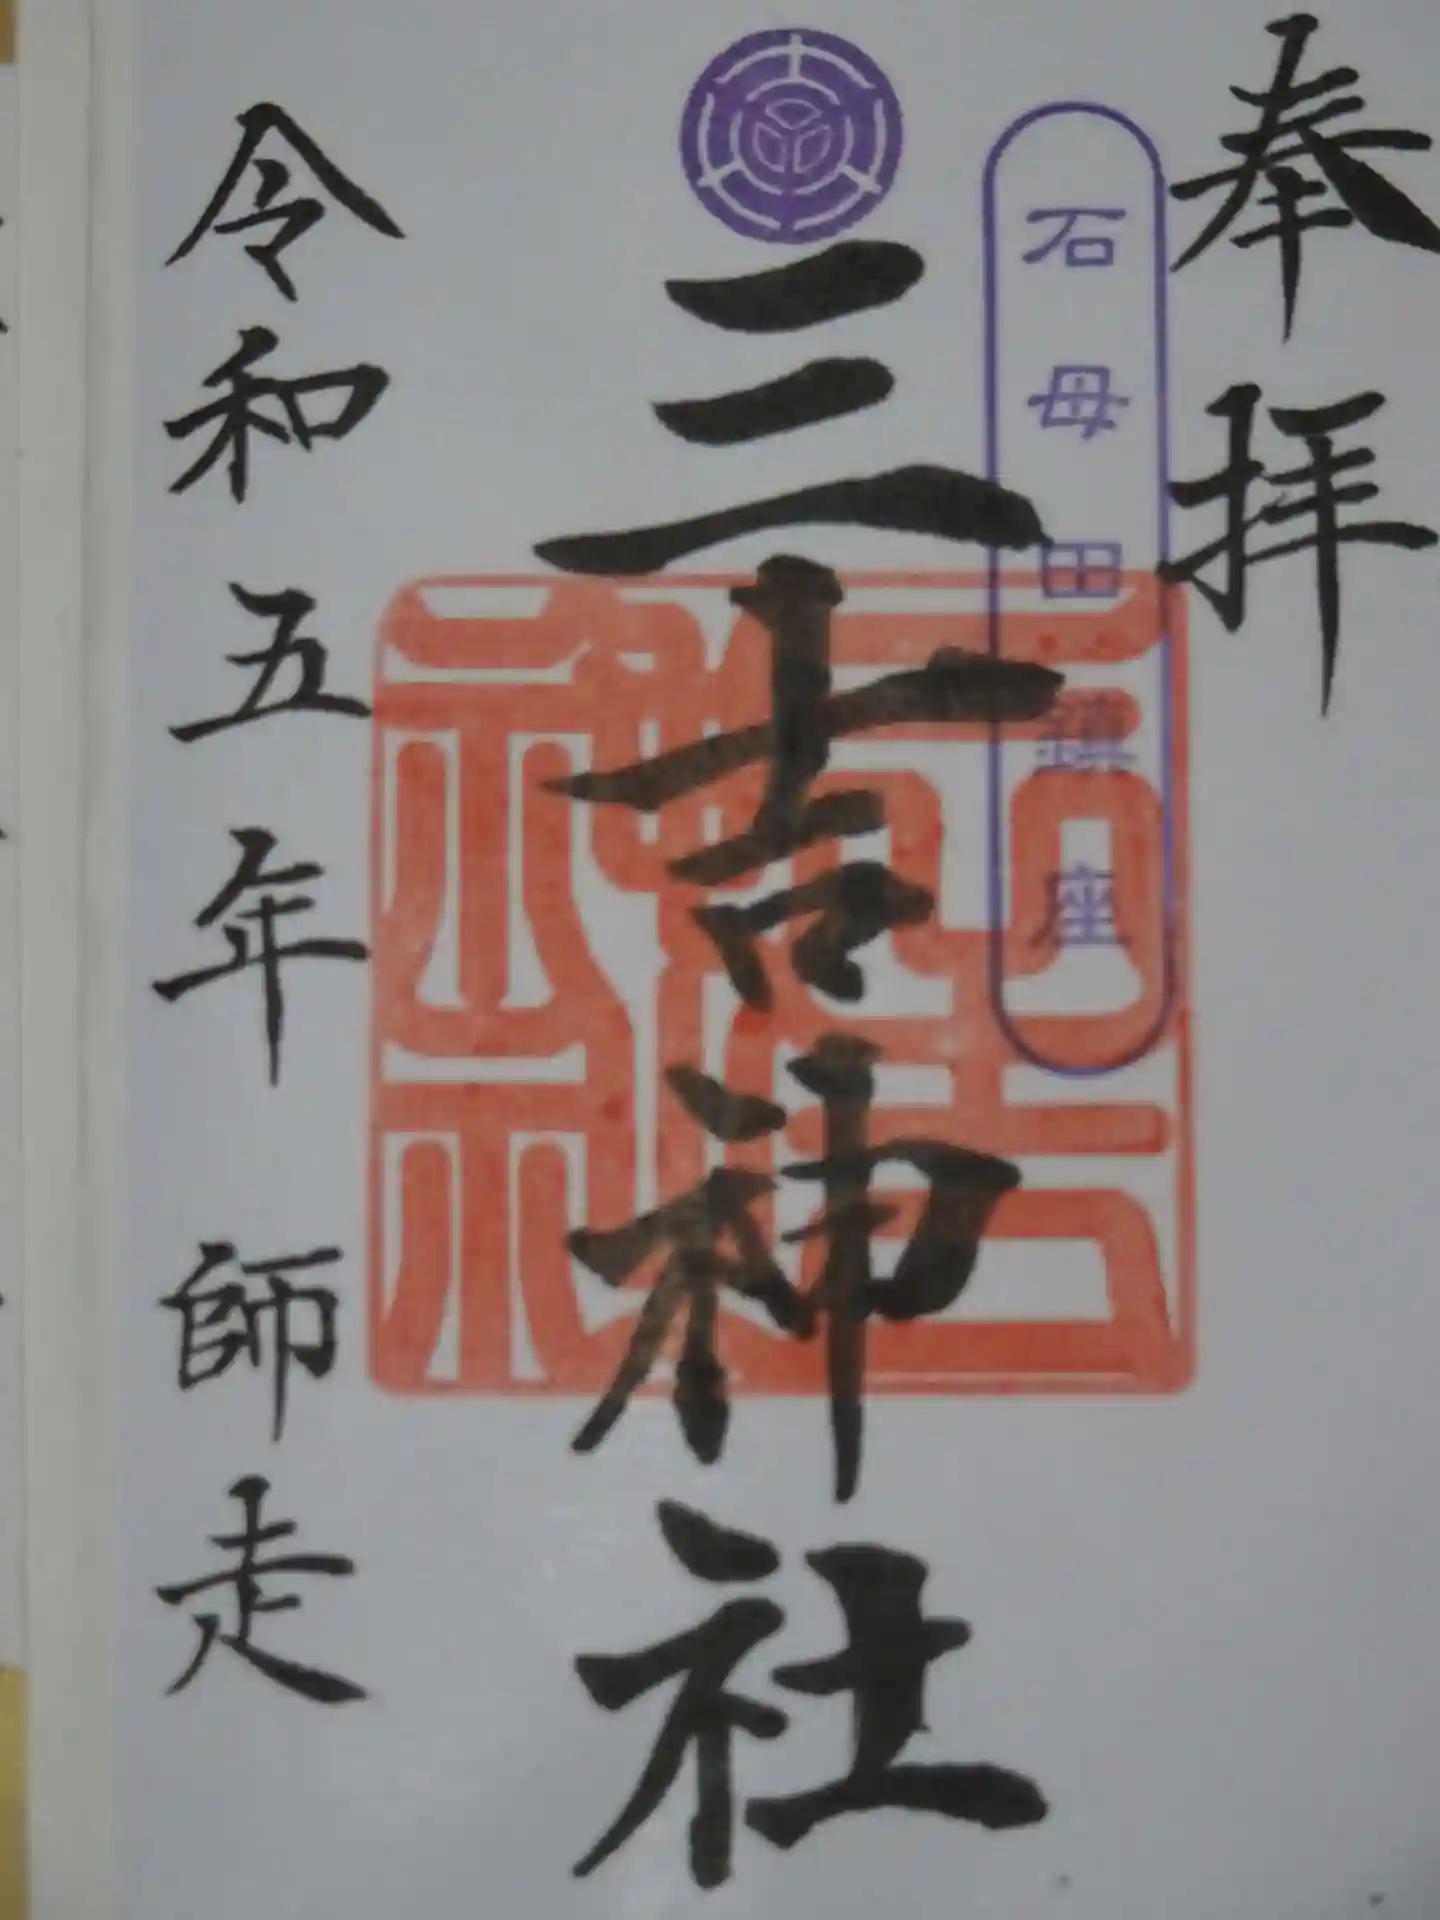 奉拝
石母田鎮座
三吉神社
令和五年 師走